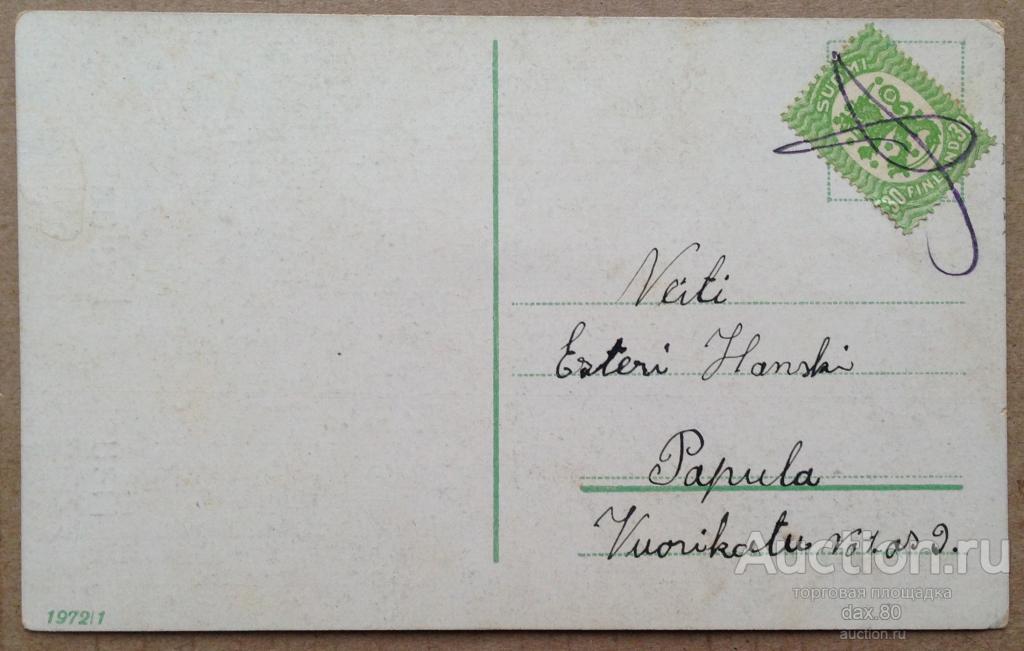 SUOMI
30 FINLAND 30
Neiti
Esteri Hanski
Papula
Vuorikatu No 1. as 2.
1972/1
Auction.ru
торговая площадка
dax.80
auction.ru